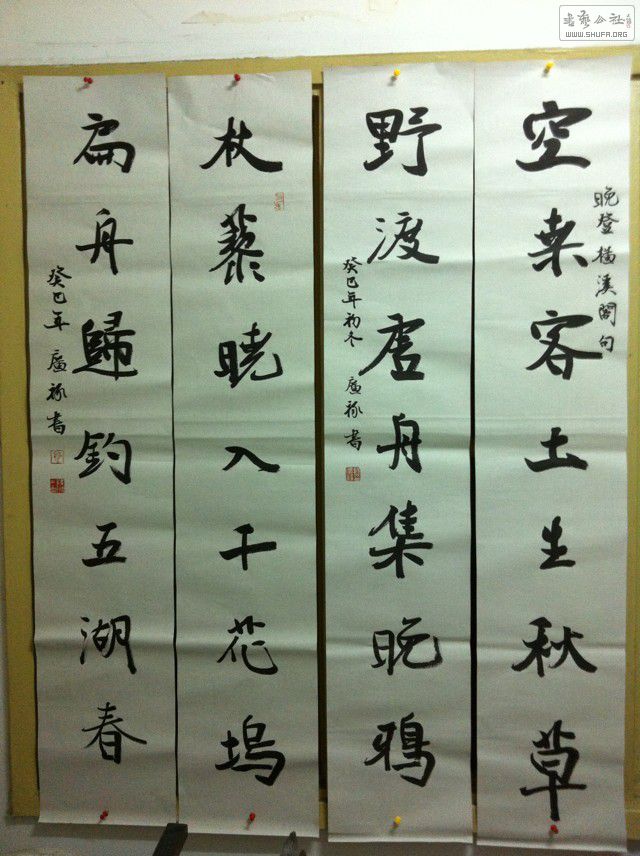 書藝公社
WWW.SHUFA.ORG
晚登橫溪閣句
空桒客土生秋草
野渡虚舟集晚鴉
癸巳年初冬 廣祿書
杖藜曉入千花塢
扁舟歸釣五湖春
癸巳年 廣祿書